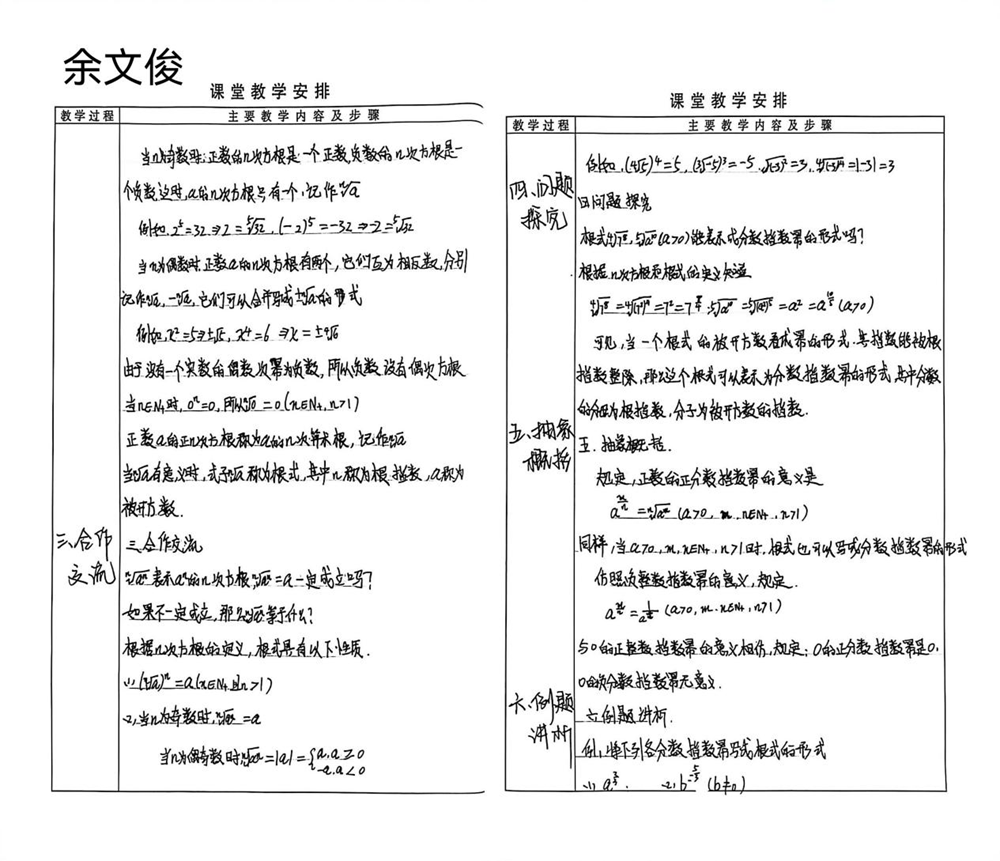 余文俊
课堂教学安排
教学过程 主要教学内容及步骤
当n为奇数时:正数的n次方根是一个正数,负数的n次方根是一
个负数,这时,a的n次方根只有一个,记作ⁿ√a
例如,2⁵=32⇒2=⁵√32,(-2)⁵=-32⇒-2=⁵√-32
当n为偶数时,正数a的n次方根有两个,它们互为相反数,分别
记作ⁿ√a,-ⁿ√a,它们可以合并写成±ⁿ√a的形式
例如,x²=5⇒±√5,x⁴=6⇒x=±⁴√6
由于没有一个实数的偶数次幂为负数,所以负数没有偶次方根
当n∈N₊时,0ⁿ=0,所以ⁿ√0=0(n∈N₊,n>1)
正数a的正n次方根称为a的n次算术根,记作ⁿ√a
当ⁿ√a有意义时,式子ⁿ√a称为根式,其中n称为根指数,a称为
被开方数.
三、合作交流
三、合作交流
ⁿ√aⁿ表示aⁿ的n次方根,ⁿ√aⁿ=a一定成立吗?
如果不一定成立,那么ⁿ√aⁿ等于什么?
根据n次方根的定义,根式具有以下性质.
(1)(ⁿ√a)ⁿ=a(n∈N₊且n>1)
(2)当n为奇数时,ⁿ√aⁿ=a
当n为偶奇数时ⁿ√aⁿ=|a|={a,a≥0
-a,a<0
课堂教学安排
教学过程 主要教学内容及步骤
例如,(⁴√5)⁴=5,(³√-5)³=-5,√(-3)²=3,⁴√(-3)⁴=|-3|=3
四、问题探究
四问题探究
根式
能表示成分数指数幂的形式吗?
根据n次方根和根式的定义知道
=a²=
(a>0)
可见,当一个根式的被开方数看成幂的形式.其指数能被根
指数整除,那么这个根式可以表示为分数指数幂的形式,其中分数
的分母为根指数,分子为被开方数的指数.
五、抽象概括
五.抽象概括
规定,正数的正分数指数幂的意义是
a^(m/n)=ⁿ√aᵐ(a>0,m、n∈N₊,n>1)
同样,当a>0,m,n∈N₊,n>1时,根式也可以写成分数指数幂的形式
仿照负整数指数幂的意义,规定.
(a>0,m、n∈N₊,n>1)
与0的正整数指数幂的意义相仿,规定:0的正分数指数幂是0,
0的负分数指数幂无意义.
六、例题讲析
六例题讲析.
例1,将下列各分数指数幂写成根式的形式
(1)
(2)
(b≠0)